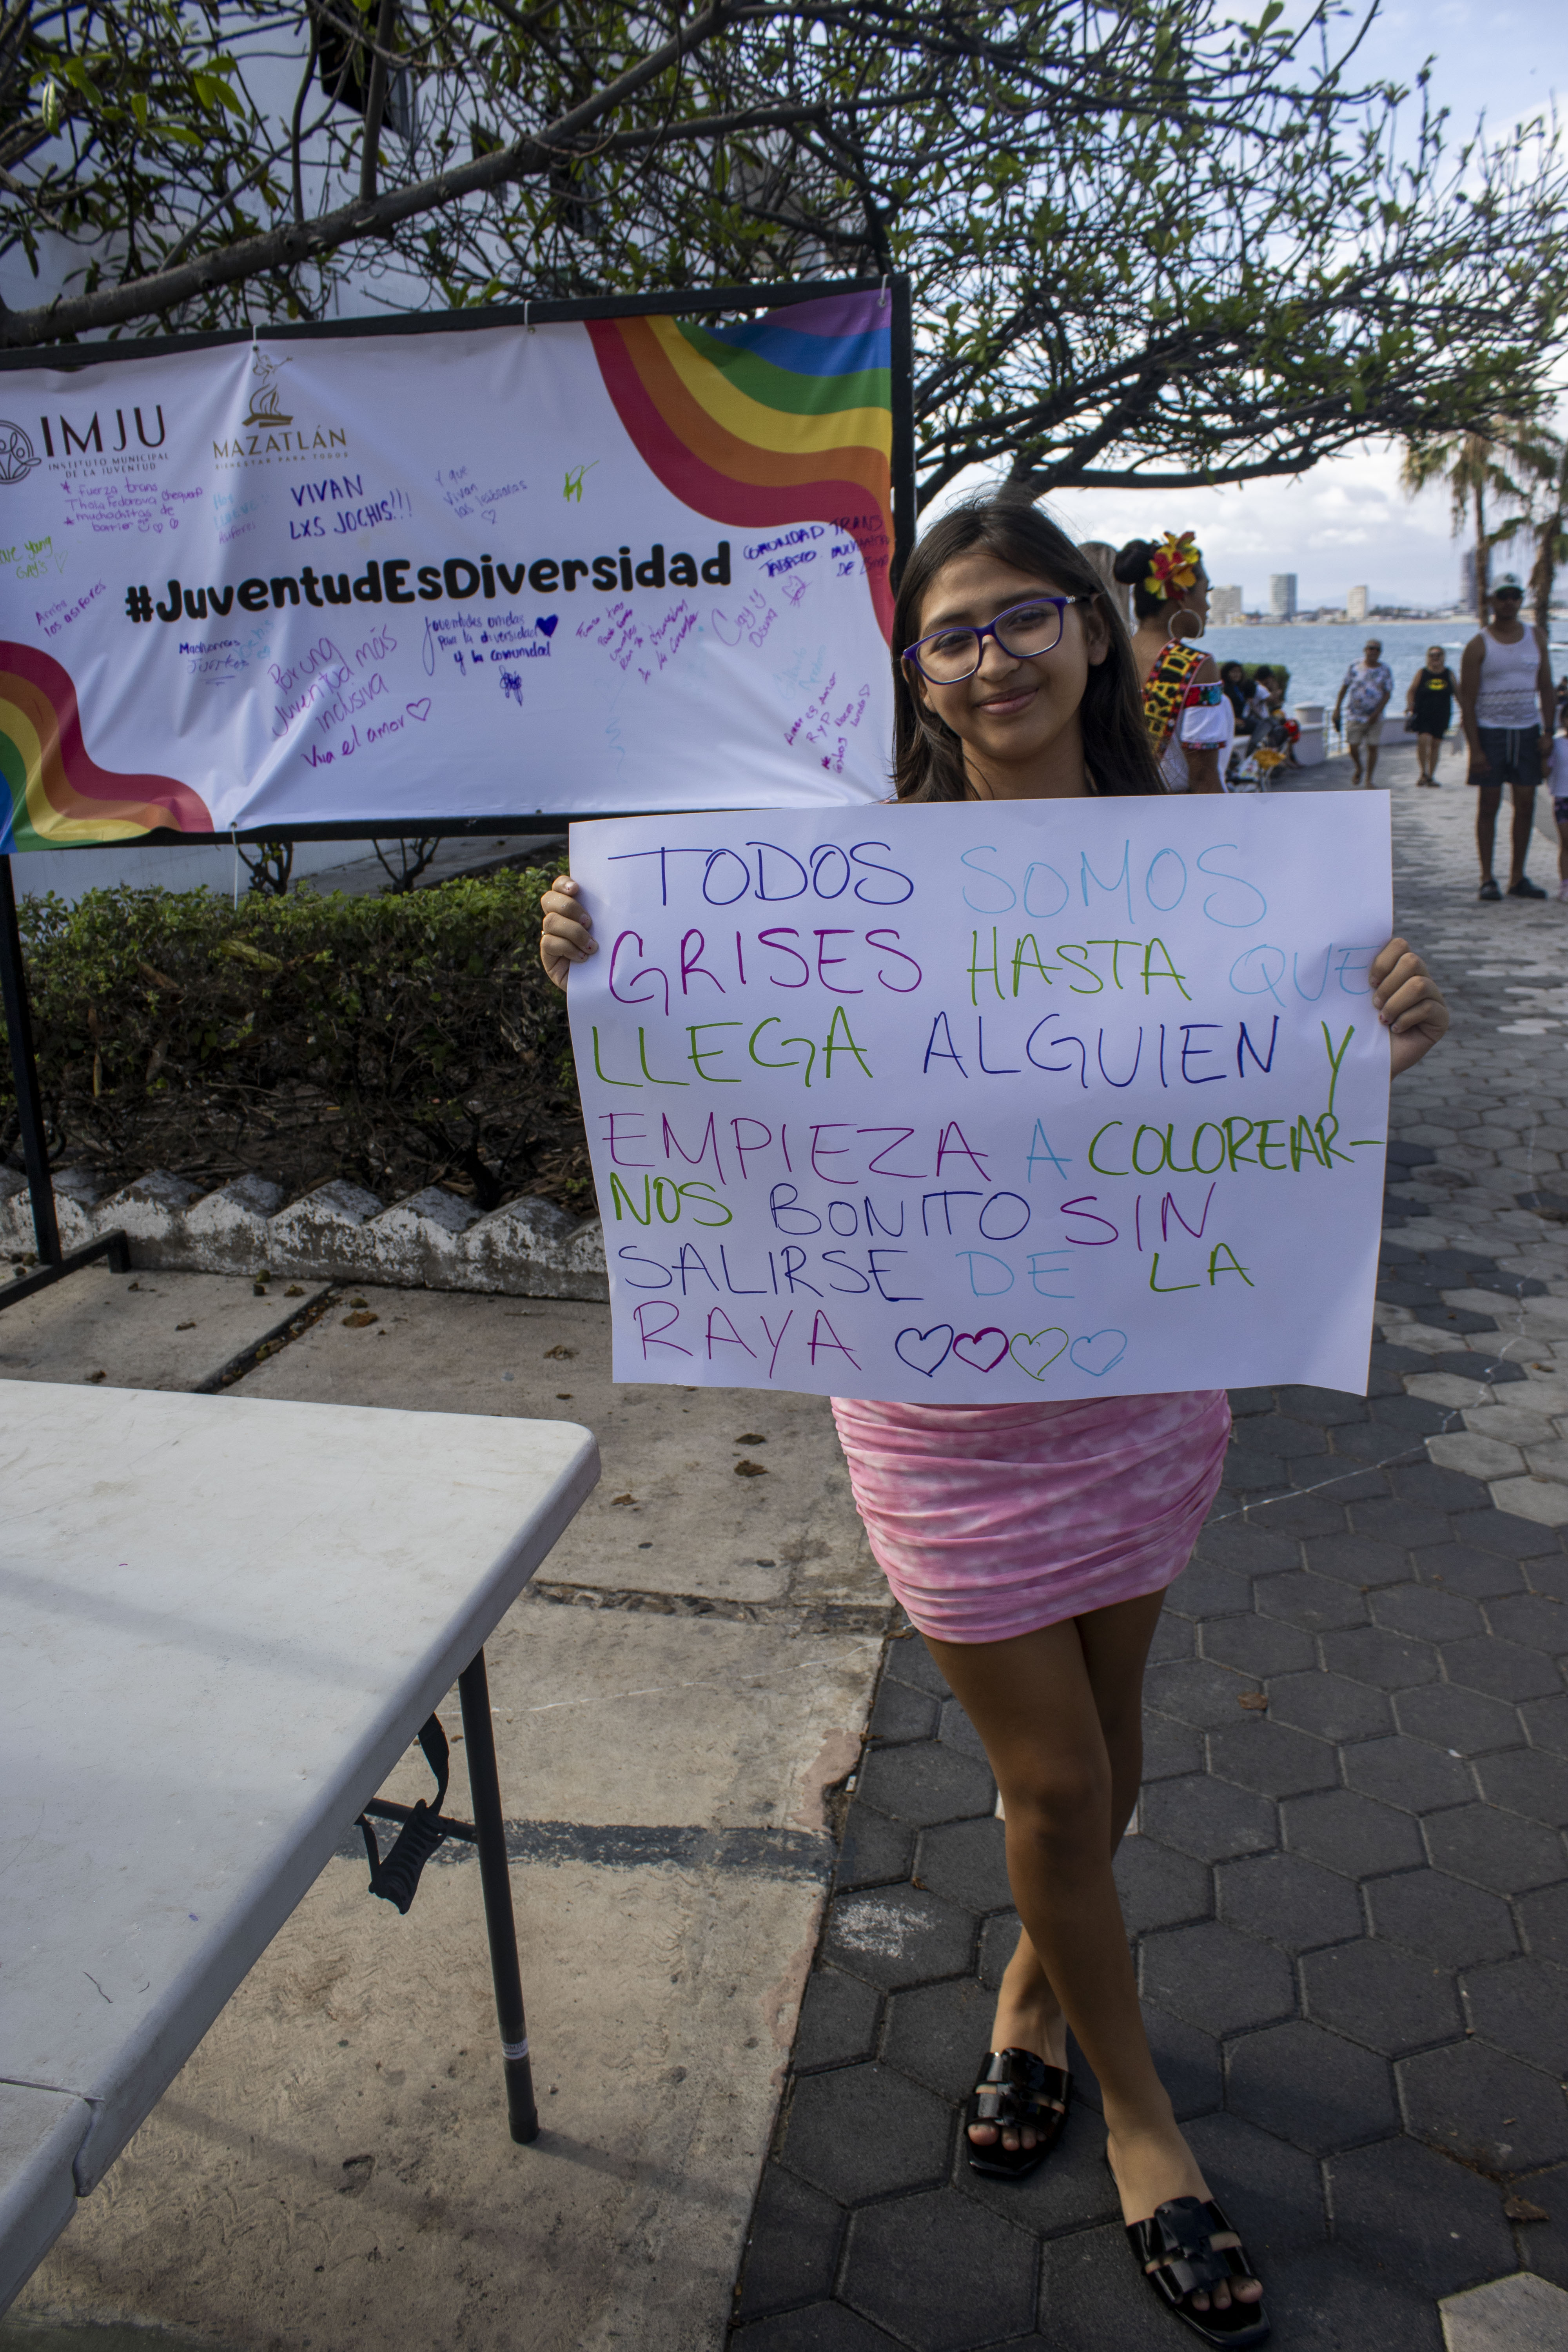 IMJU
INSTITUTO MUNICIPAL
DE LA JUVENTUD
MAZATLÁN
BIENESTAR PARA TODOS
* fuerza trans
* muchachitas de
barrier
VIVAN
LXS JOCHIS!!!
Y que
Vivan
las lesbianas
COMUNIDAD TRANS
#JuventudEsDiversidad
Juventudes unidas
para la diversidad
y la comunidad
Por una
Juventud más
inclusiva
Viva el amor
Amor es Amor
ERA DE
TODOS SOMOS
GRISES HASTA QUE
LLEGA ALGUIEN Y
EMPIEZA A COLOREAR-
NOS BONITO SIN
SALIRSE DE LA
RAYA